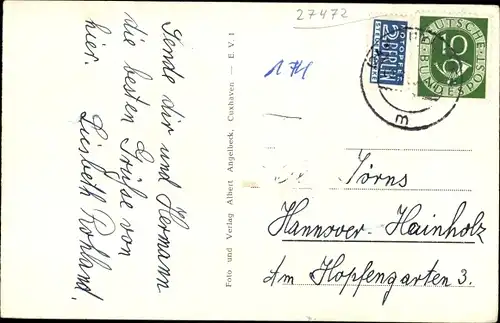 27472
174
Sende dir und Hermann
die besten Grüße von
hier.
Liesbeth Rohland.
Foto und Verlag Albert Angelbeck, Cuxhaven — E. V. 1
NOTOPFER
2 BERLIN
STEUERMARKE
DEUTSCHE
BUNDESPOST
10
m
Jörns
Hannover-Hainholz
Am Hopfengarten 3.